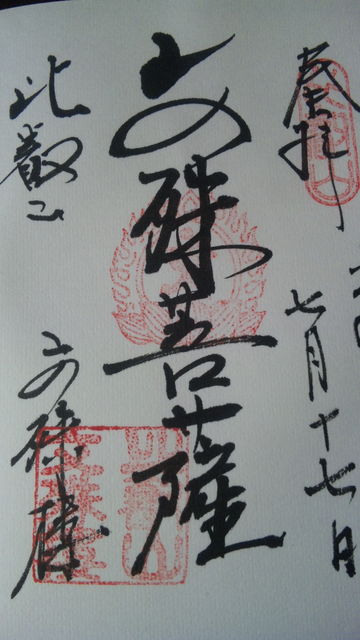 奉拝
七月十七日
文殊菩薩
比叡山
文殊楼